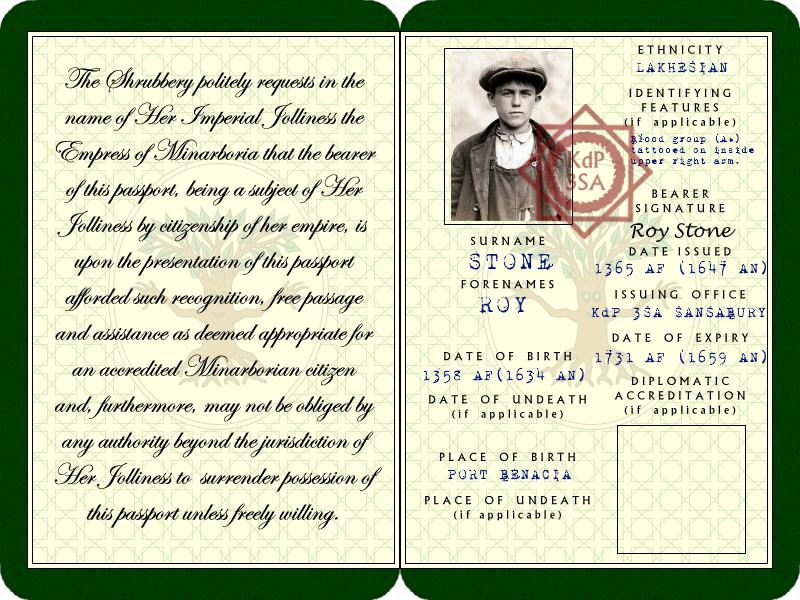 The Shrubbery politely requests in the
name of Her Imperial Jolliness the
Empress of Minarboria that the bearer
of this passport, being a subject of Her
Jolliness by citizenship of her empire, is
upon the presentation of this passport
afforded such recognition, free passage
and assistance as deemed appropriate for
an accredited Minarborian citizen
and, furthermore, may not be obliged by
any authority beyond the jurisdiction of
Her Jolliness to surrender possession of
this passport unless freely willing.
KdP
3SA
SURNAME
STONE
FORENAMES
ROY
DATE OF BIRTH
1358 AF(1634 AN)
DATE OF UNDEATH
(if applicable)
PLACE OF BIRTH
PORT BENACIA
PLACE OF UNDEATH
(if applicable)
ETHNICITY
LAKHESIAN
IDENTIFYING
FEATURES
(if applicable)
Blood group (A+)
tattooed on inside
upper right arm.
BEARER
SIGNATURE
Roy Stone
DATE ISSUED
1365 AF (1647 AN)
ISSUING OFFICE
KdP 3SA SANSABURY
DATE OF EXPIRY
1731 AF (1659 AN)
DIPLOMATIC
ACCREDITATION
(if applicable)